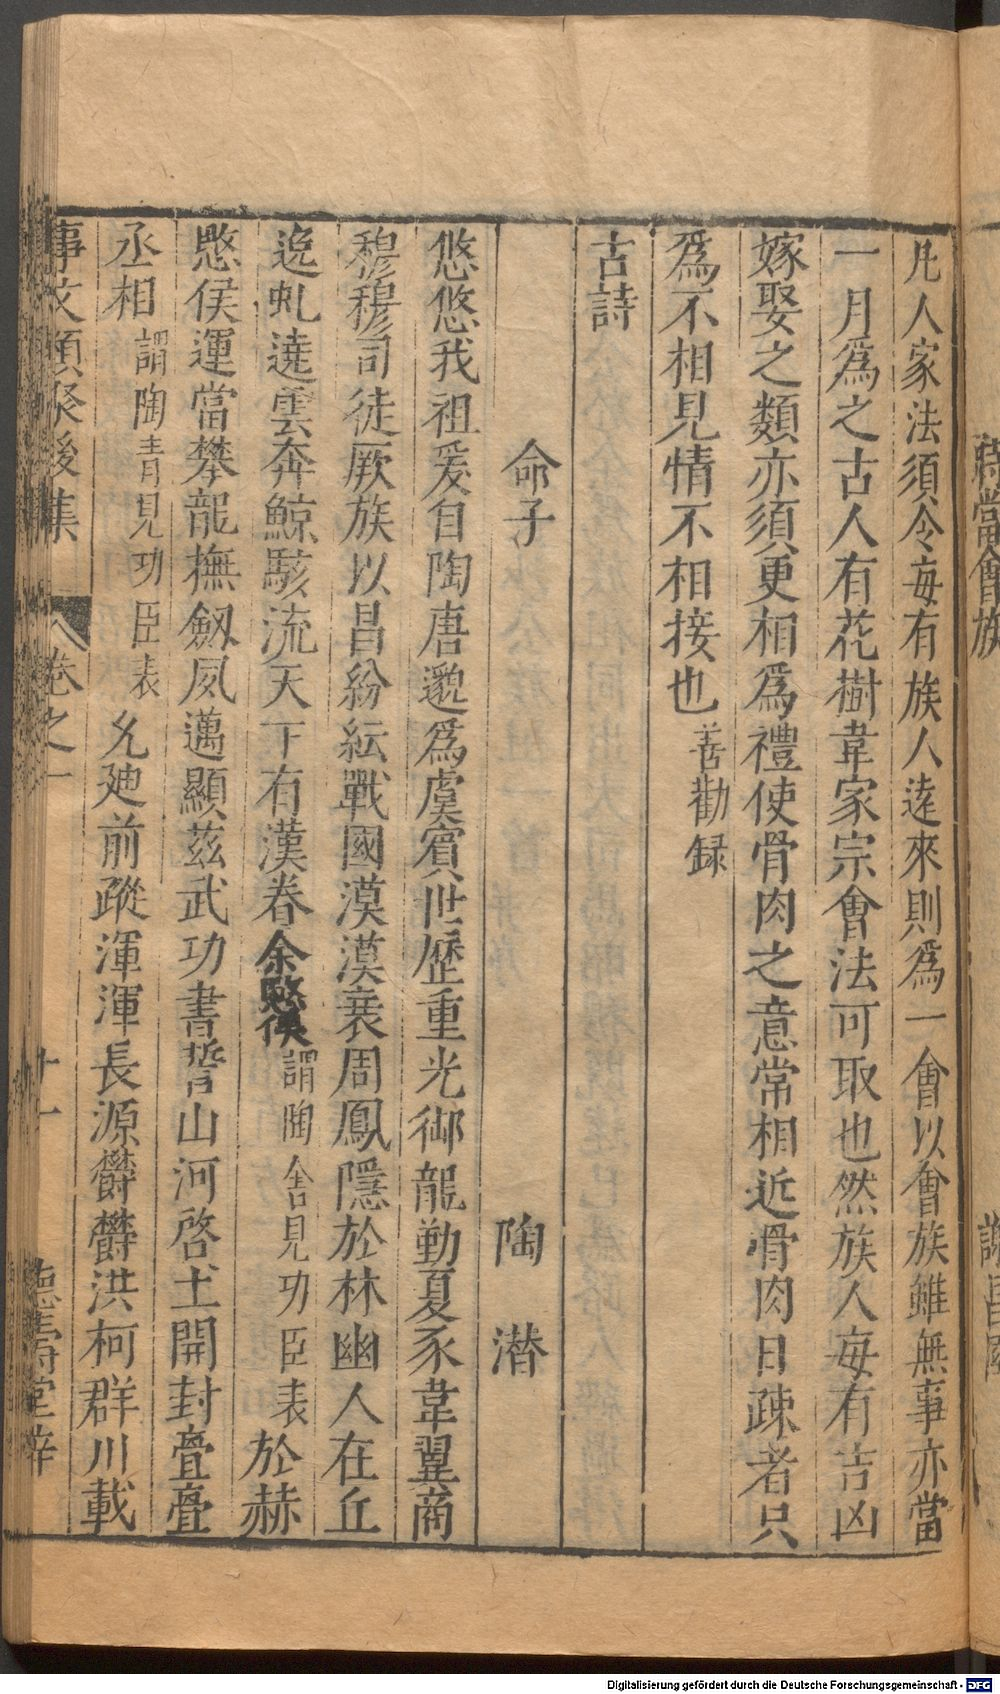 凡人家法須令每有族人逺來則爲一會以會族雖無事亦當
一月爲之古人有花樹韋家宗會法可取也然族人每有吉凶
嫁娶之類亦須更相爲禮使骨肉之意常相近骨肉日疎者只
爲不相見情不相接也善勸録
古詩
命子 陶潜
悠悠我祖爰自陶唐邈爲虞賓世歴重光御龍勤夏豕韋翼商
穆穆司徒厥族以昌紛紜戰國漠漠衰周鳳隱於林幽人在丘
逸虬遶雲奔鯨駭流天下有漢眷余愍侯謂陶舎見功臣表於赫
愍侯運當攀龍撫劔夙邁顯兹武功書誓山河啓土開封亹亹
丞相謂陶青見功臣表允廸前蹤渾渾長源欝欝洪柯群川載
事文類聚後集 卷之一 十一 德壽堂梓
會族
Digitalisierung gefördert durch die Deutsche Forschungsgemeinschaft - DFG